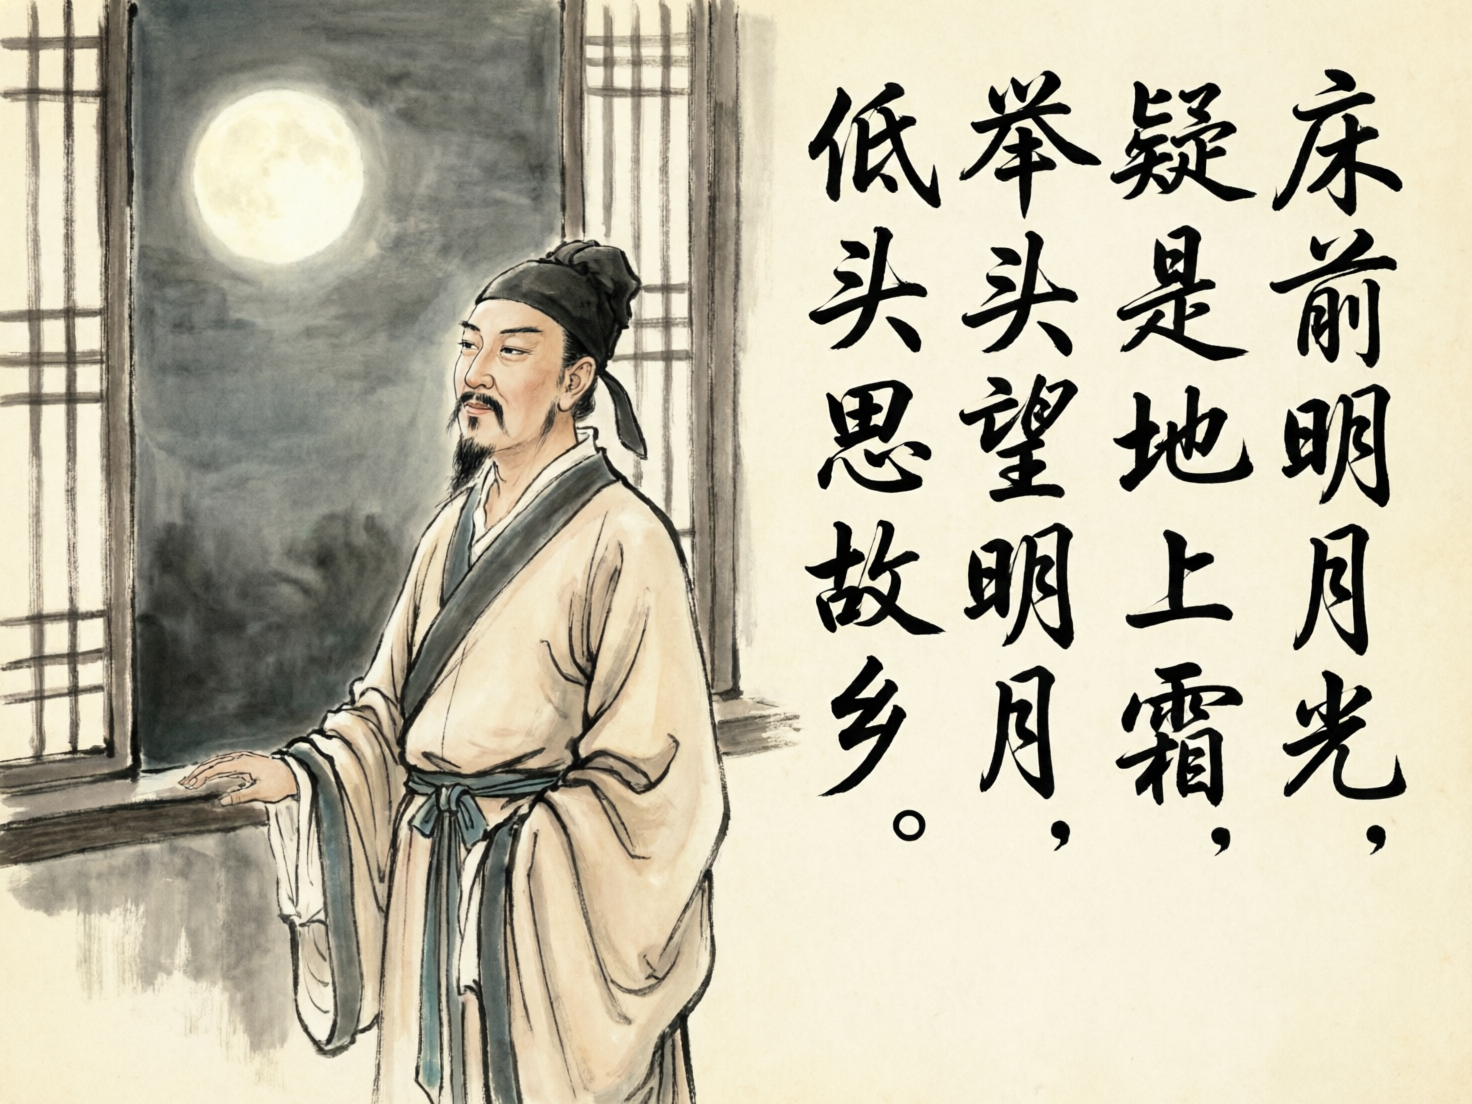 床前明月光，
疑是地上霜，
举头望明月，
低头思故乡。